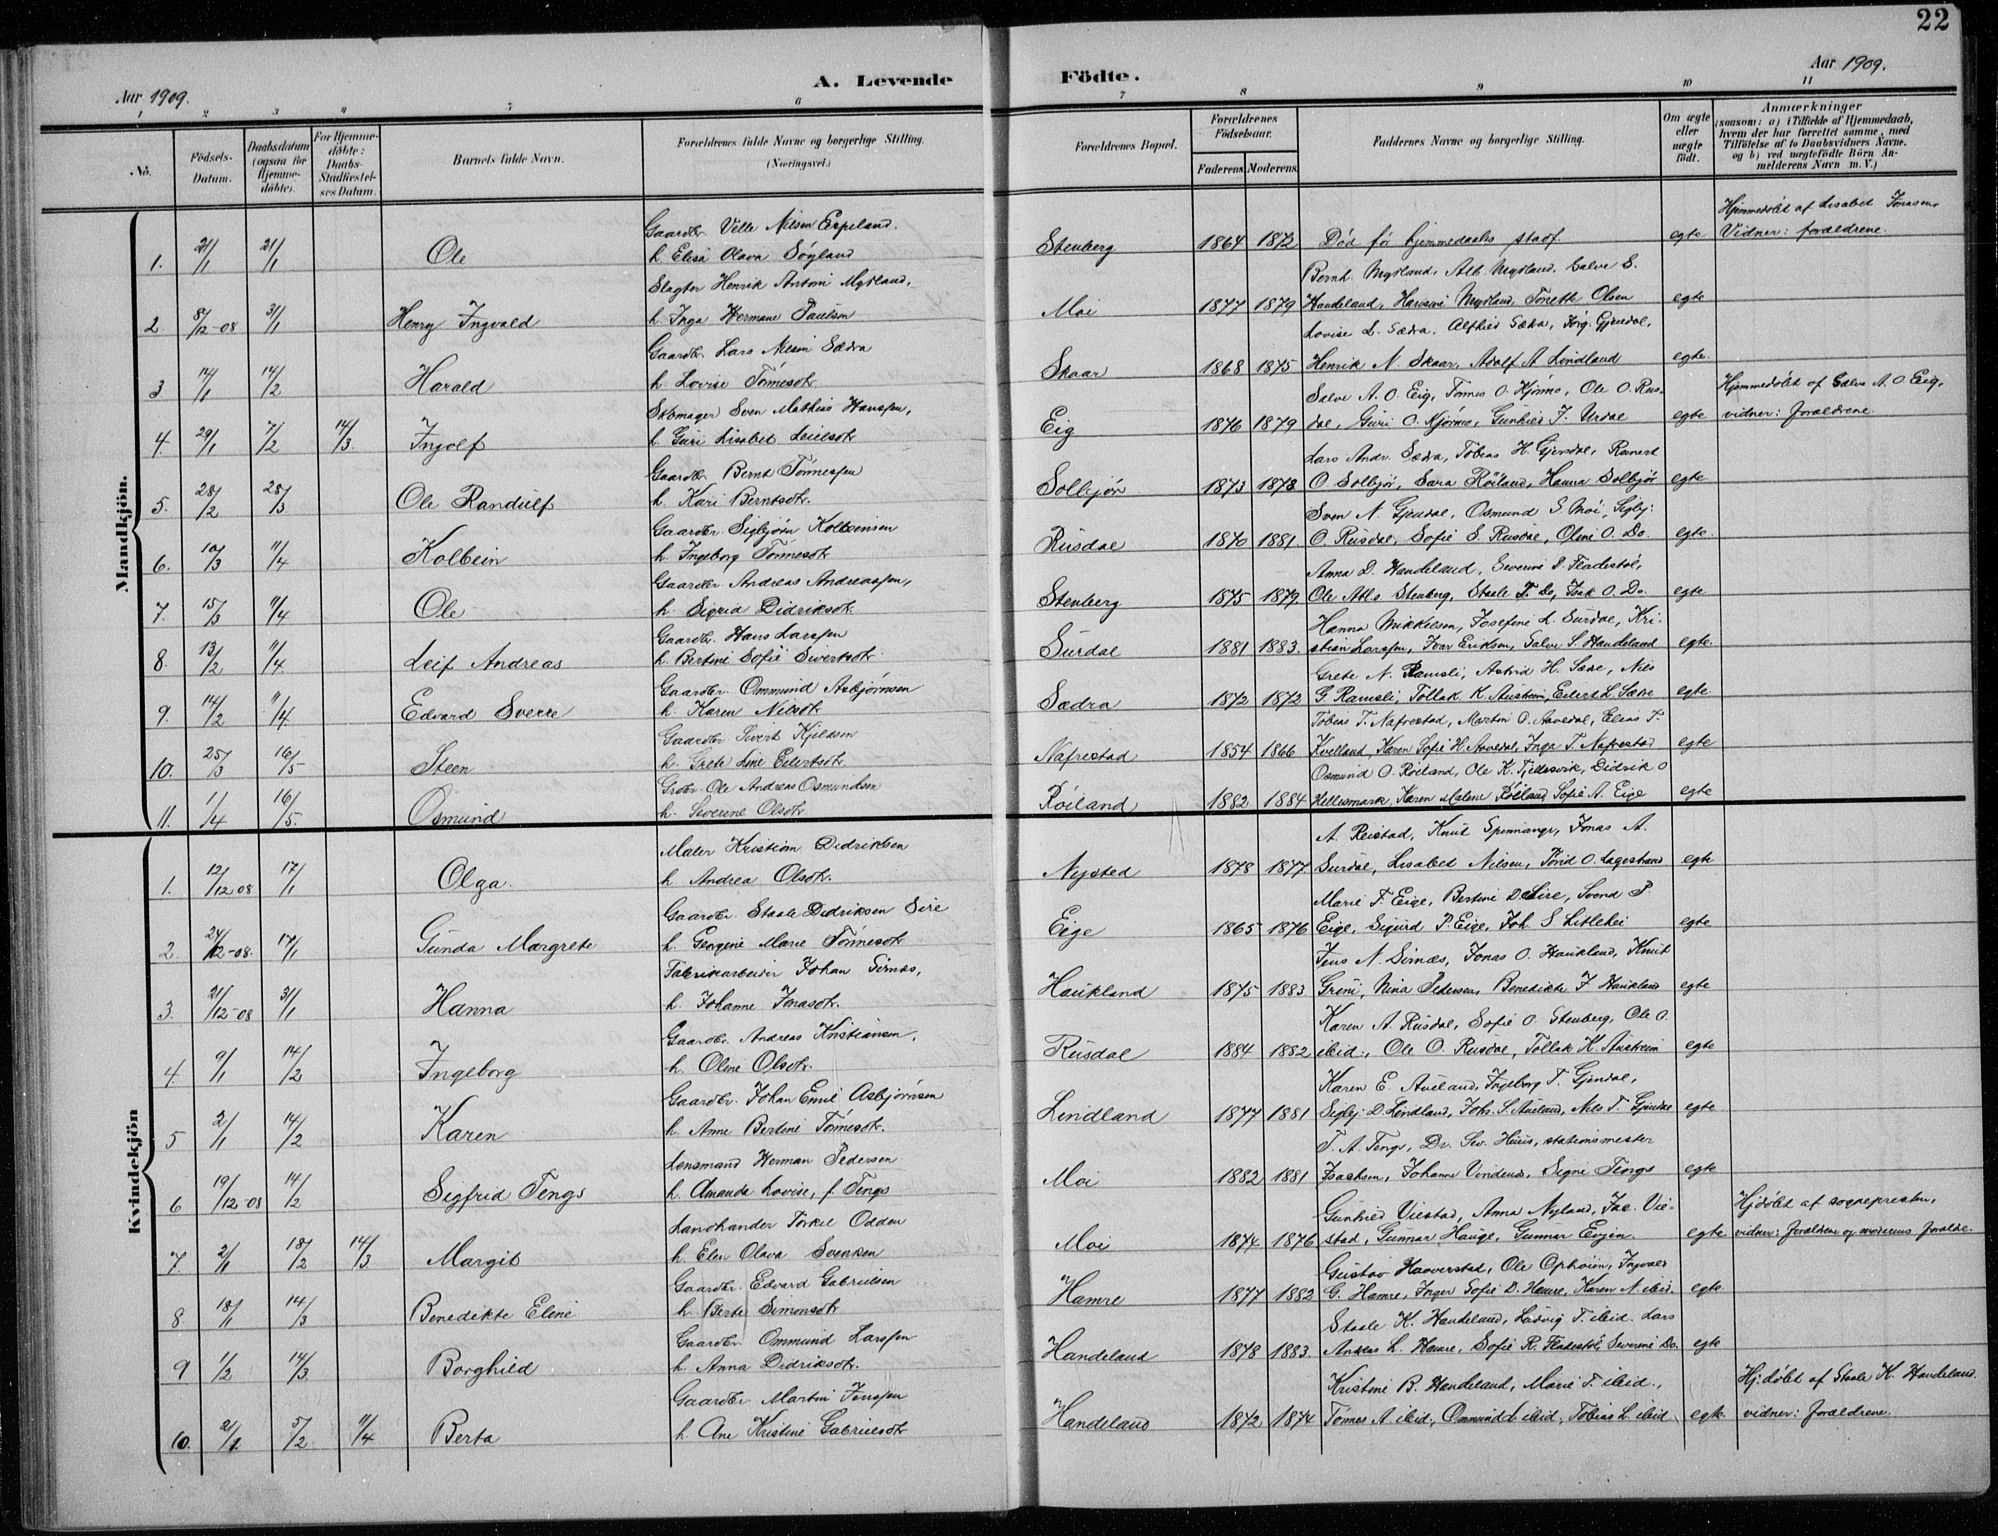 22
A. Levende Födte.
Aar 1909.
Aar 1909.
1 2 3 4 5 6 7 8 9 10 11
No.
Födsels-Datum.
Daabsdatum (ogsaa for Hjemmedöbte).
For Hjemmedöbte: Daabs-Stadfæstelses Datum.
Barnets fulde Navn.
Forældrenes fulde Navne og borgerlige Stilling. (Næringsvei.)
Forældrenes Bopæl.
Forældrenes Födselsaar.
Faderens. Moderens.
Faddernes Navne og borgerlige Stilling.
Om ægte eller uægte födt.
Anmærkninger (saasom: a) i Tilfælde af Hjemmedaab, hvem der har forrettet samme, med Tilföielse af to Daabsvidners Navne, og b) ved uægtefödte Börn Anmelderens Navn m. V.)
Mandkjön.
1. 21/1 21/1 Ole
Gaardbr. Velle Nilsen Espeland.
h. Elisa Olava Søyland
Stenberg 1864 1872 Død før hjemmedaabs stadf. egte
Hjemmedøbt af Lisabet Jonasen
Vidner: forældrene.
2 8/12-08 31/1 Henry Ingvald
Slagter Henrik Antoni Mydland,
h. Inga Hermane Paulsen
Moi 1877 1879
Bernh. Mydland, Alb. Mydland, Salve S.
Handeland, Hansine Mydland, Tonette Olsen egte
3 14/1 14/2 Harald
Gaardbr. Lars Nilsen Sædra
h. Lovise Tønnesdtr.
Skaar 1868 1875
Lovise L. Sædra, Alfhild Sædra, Jørg. Gjendal,
Henrik N. Skaar, Adolf A. Lindland egte.
4. 29/1 7/2 14/3. Ingolf
Skomager Sven Mathias Hanssen,
h. Guri Lisabet Leielsdtr.
Eig 1876 1879
Salve A. O. Eig, Tønnes O. Hjørmo, Ole O. Rus-
dal, Guri O. Hjørmo, Gunhild J. Urdal egte
Hjemmedøbt af Salve A. O. Eig,
vidner: forældrene.
5. 28/2 28/3 Ole Randulf
Gaardbr. Bernt Tønnessen
h. Kari Berntsdtr.
Solbjør 1873 1878
Lars Andr. Sædra, Tobias H. Gjendal, Reinert
O Solbjør, Sara Røiland, Hanna Solbjør egte
6. 10/3 11/4 Kolbein
Gaardbr. Sigbjørn Kolbeinsen
h. Ingeborg Tønnesdtr.
Rusdal 1870 1881.
Sven N. Gjendal, Osmund S. Moi, Sigbj.
O. Rusdal, Sofie S. Rusdal, Oline O. Do. egte.
7. 15/3 11/4 Ole
Gaardbr. Andreas Andreassen,
h. Sigrid Didriksdtr.
Stenberg 1875 1879
Anna D. Handeland, Severine P. Fladestøl,
Ole Atls. Stenberg, Staale T. Do, Isak O. Do. egte
8. 13/2 11/4. Leif Andreas
Gaardbr. Hans Larssen
h. Bertine Sofie Sivertsdtr.
Surdal 1881 1883.
Hanna Mikkelsen, Josefine L. Surdal, Kri-
stian Larssen, Ivar Eriksen, Salve S. Handeland egte.
9. 14/2 11/4 Edvard Sverre
Gaardbr. Ommund Asbjørnsen
h. Karen Nilsdtr.
Sædra 1872 1872
Grete N. Ramsli, Astrid H. Sædr., Nils
G. Ramsli, Tollak K. Austrem, Eilert L. Sædr. egte
10. 25/3 16/5 Steen
Gaardbr. Sivert Kjeldsen
h. Grete Line Eilertsdtr.
Nafrestad 1854 1866
Tobias T. Nafrestad, Martin O. Aavedal, Elias T.
Kvelland, Karen Sofie H. Aavedal, Inger T. Nafrestad egte
11. 1/4 16/5. Osmund
Grdbr. Ole Andreas Osmundsen
h. Severine Olsdtr.
Røiland 1882 1884
Osmund O. Røiland, Ole K. Fjellesvik, Didrik O
Hellesmark, Karen Malene Røiland, Sofie A. Eige egte
Kvindekjön
1. 12/12 08 17/1 Olga
Maler Kristian Didriksen
h. Andrea Olsdtr.
Nysted 1878 1877
A. Reistad, Knut Spinnangr, Jonas A.
Surdal, Lisabet Nilsen, Torid O. Lagestrand egte
2. 24/12-08. 17/1 Gunda Margrete
Gaardbr. Staale Didriksen Sire
h. Georgine Marie Tønnesdtr.
Eige 1865 1876
Marie F. Eige, Bertine D. Sire, Svend P.
Eige, Sigurd P. Eige, Joh. S. Litlehei egte
3. 21/12-08 31/1 Hanna
Fabrikarbeider Johan Sirnes,
h. Johanne Jonasdtr.
Haukland 1875 1883
Jens N. Sirnes, Jonas O. Haukland, Knut
Greni, Nina Pedersen, Benedikte J Haukland egte
4 9/1 14/2 Ingeborg
Gaardbr. Andreas Kristiansen,
h. Oline Olsdtr.
Rusdal 1884 1882
Karen A. Rusdal, Sofie O. Stenberg, Ole O.
ibid., Ole O. Rusdal, Tollak K. Austrem egte
5 2/1 14/2 Karen
Gaardbr. Johan Emil Asbjørnsen
h. Anne Bertine Tønnesdtr.
Lindland 1877 1881
Karen E. Aueland, Ingeborg T. Gjendal,
Sigbj. D. Lindland, Johs. S. Aueland, Nils T. Gjendal egte
6 19/12-08 14/2 Sigfrid Tengs
Lensmand Herman Pedersen
h. Amanda Lovise, f. Tengs
Moi 1882 1881
T. A. Tengs, Dr. Sev. Huus, stationsmester
Isachsen, Johanne Vindenes, Signe Tengs egte
7 2/1 18/2 14/3 Margit
Landhandler Torkel Odden
h. Elen Olava Svensen
Moi 1874 1876
Gunhild Vilstad, Anna Nyland, Jac. Vil-
stad, Gunnar Hauge, Gunnar Evjen egte
Hjdøbt af sognepresten,
vidner: forældrene og moderens foraldre.
8 18/1 14/3 Benedikte Eline
Gaardbr. Edvard Gabrielsen
h. Berte Simonsdtr.
Hamre 1877 1882
Gustav Haaverstad, Ole Ophoien, Ingvald
G. Hamre, Inger Sofie D. Hamre, Karen N. ibid. egte.
9 1/2 14/3. Borghild
Gaardbr. Ommund Larssen
h. Anna Didriksdtr.
Handeland 1878 1883.
Staale K. Handeland, Ludvig T. ibid. Lars
Andreas L. Hamre, Sofie R. Fladestøl, Severine Do. egte
10. 21/1 5/2. 11/4 Berta
Gaardbr. Martin Jenssen
h. Ane Kristine Gabrielsdtr
Handeland 1872 1874
Kristine B. Handeland, Marie T. ibid.,
Tønnes A. ibid, Ommund L ibid, Tobias L. ibid. egte.
Hj.døbt af Staale K. Handeland.
vidner: forældrene.